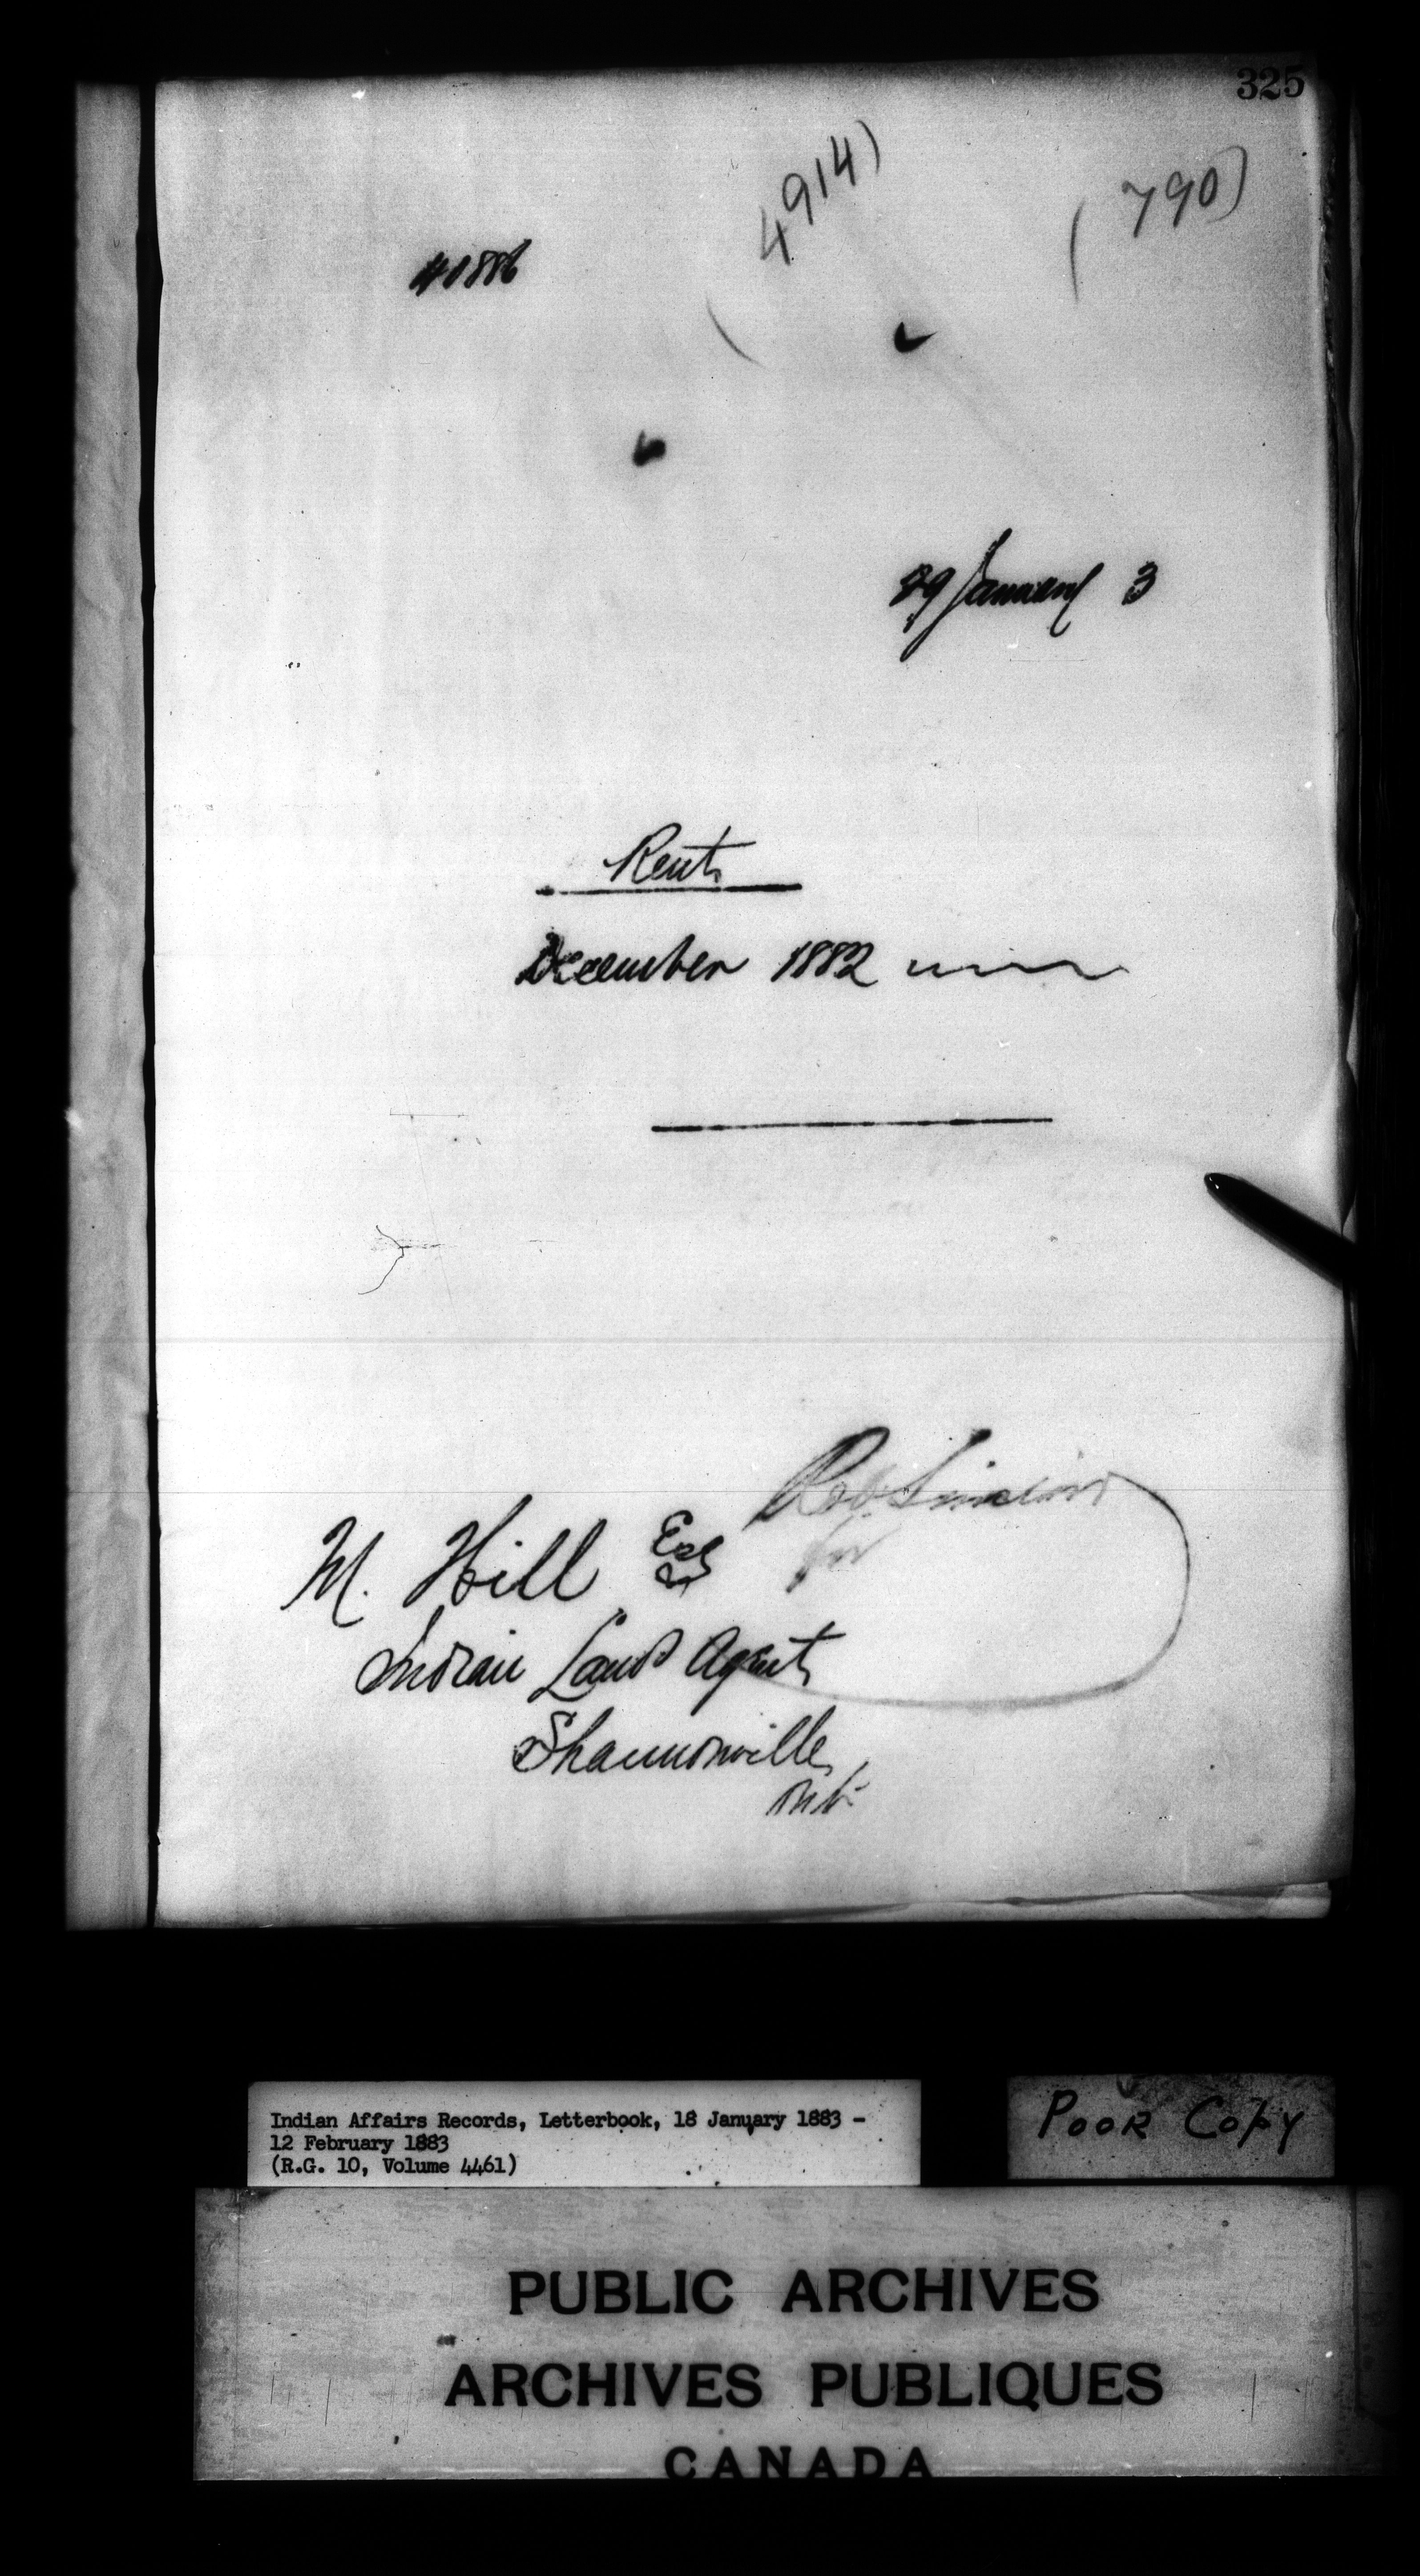 325
(4914)
(790)
40886
29 January 3
Rents
December 1882
Rob Sinclair
for
M. Hill Esq
Indian Land Agent
Shannonville
Ont.
Indian Affairs Records, Letterbook, 18 January 1883 -
12 February 1883
(R.G. 10, Volume 4461)
POOR COPY
PUBLIC ARCHIVES
ARCHIVES PUBLIQUES
CANADA